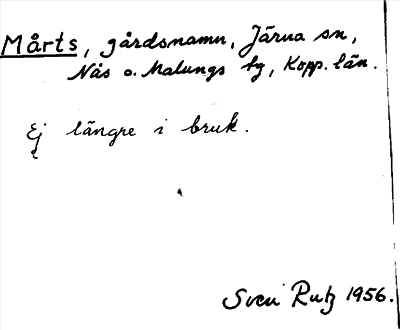 Mårts, gårdsnamn, Järna sn,
Nås o. Malungs tg, Kopp. län.
Ej längre i bruk.
Sven Rutz 1956.